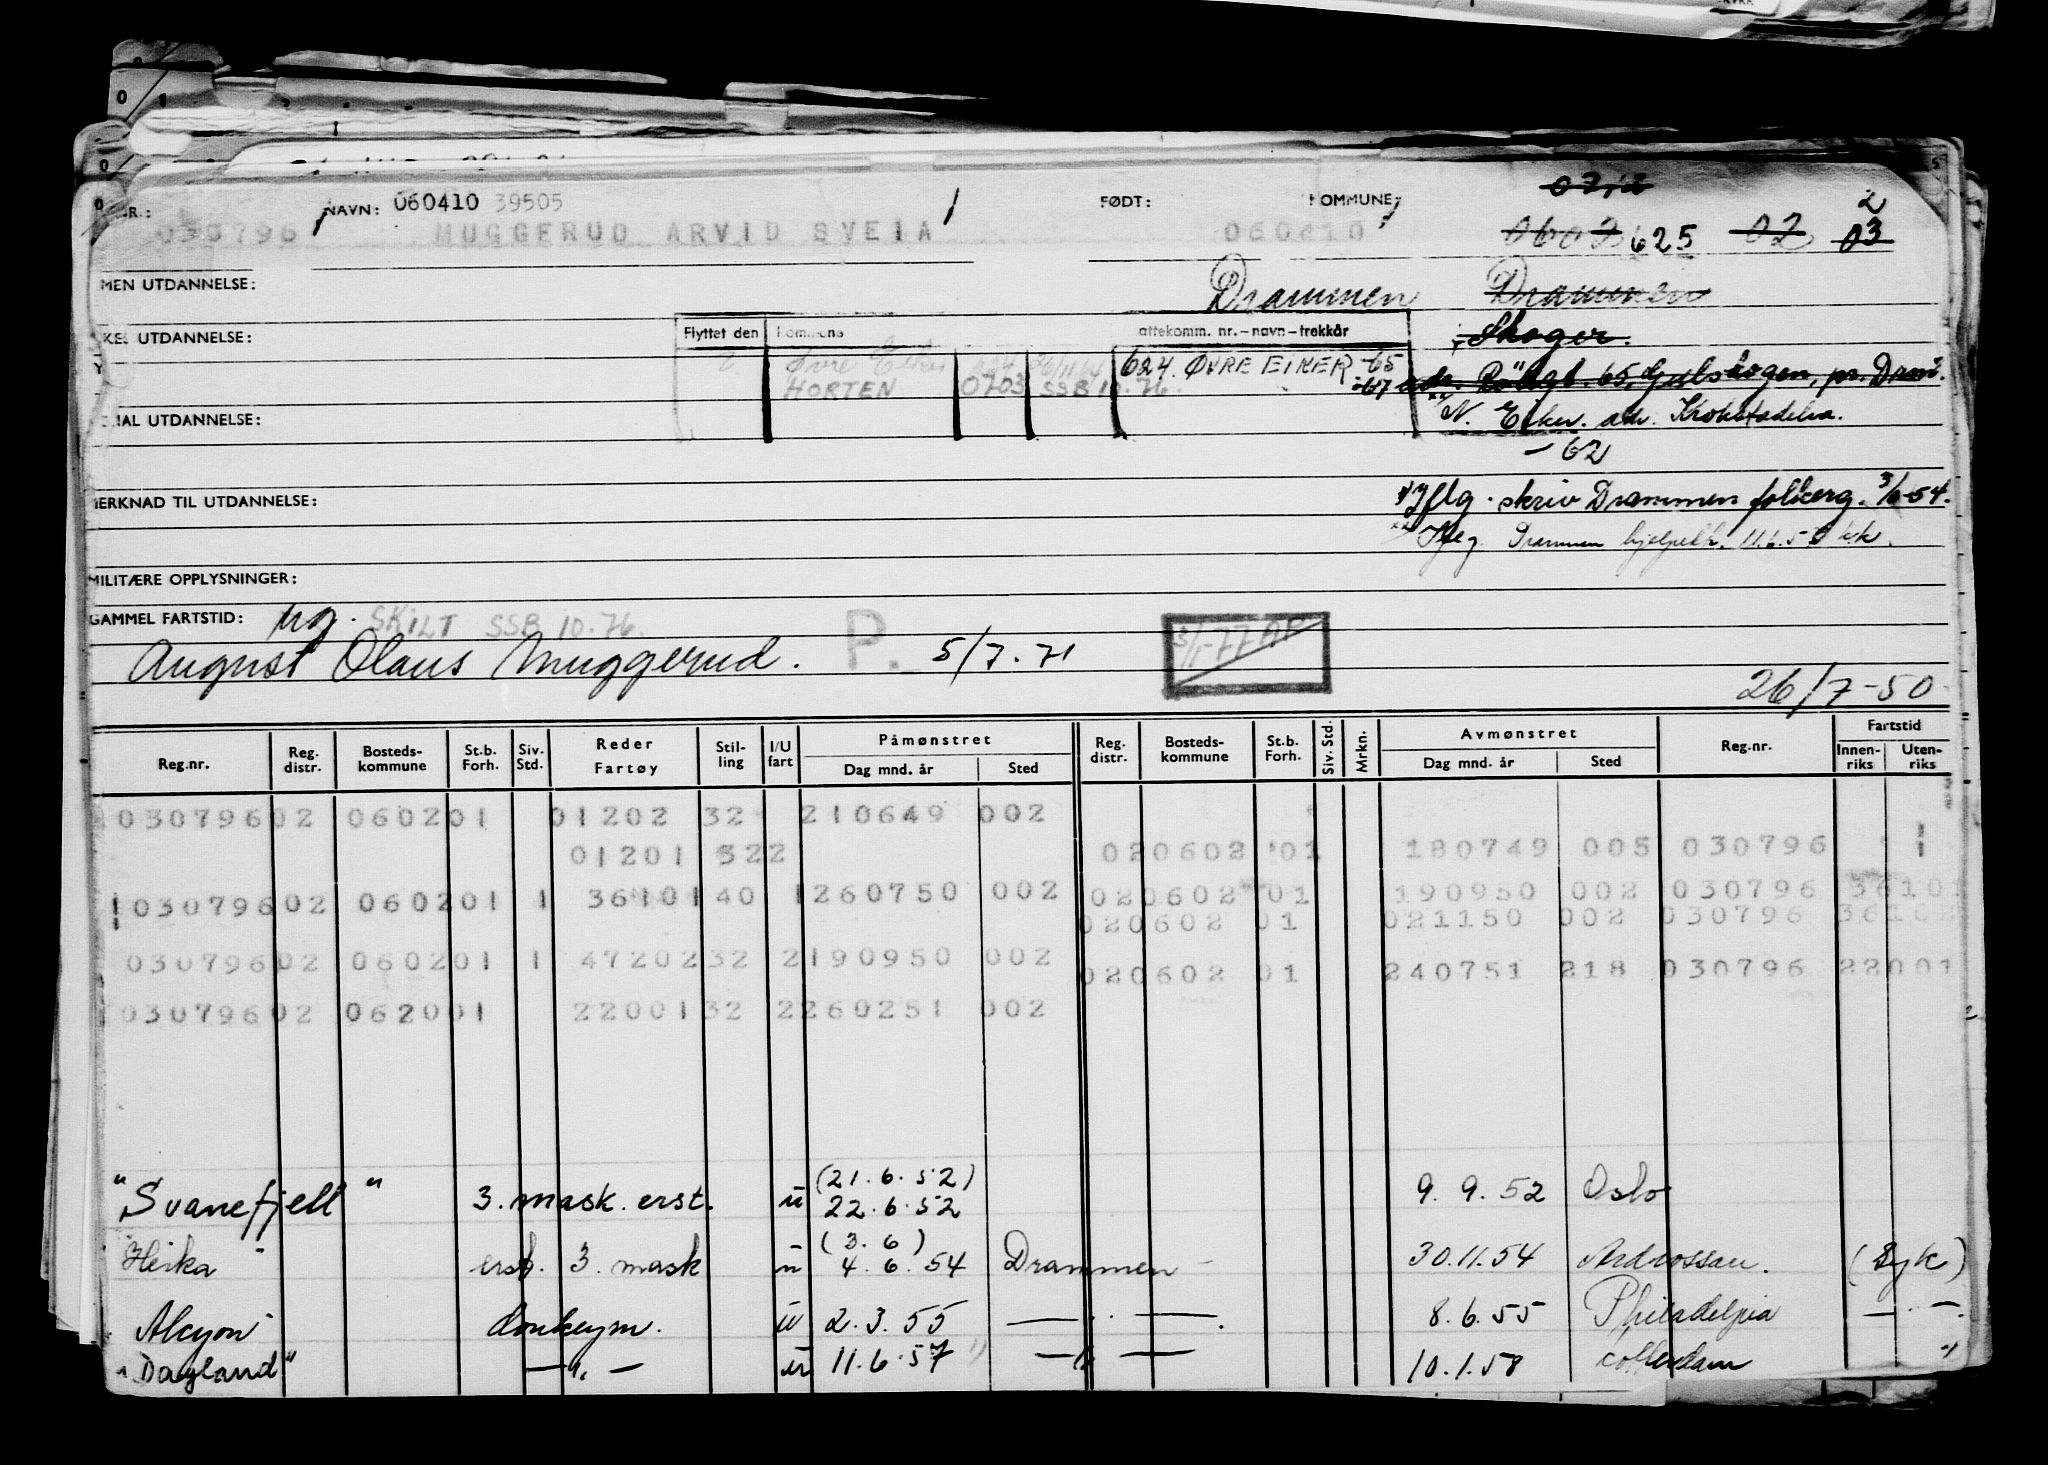 NR.: NAVN: 060410 39505 FØDT: KOMMUNE: 2
030796 MUGGERUD ARVID SVEIA 060410 0602 625 02 03
MEN UTDANNELSE: Drammen Drammen
UTDANNELSE: Flyttet den attekomm. nr.–navn–trekkår Skoger.
Øvre Eiker 624. ØVRE EIKER -65
HORTEN 0703 SSB 10.76. -67 65, Gulskogen, pr. Dram.
IAL UTDANNELSE: N. Eiker. adr. Krokstadelva.
-62
MERKNAD TIL UTDANNELSE: Iflg. skriv Drammen folkerg. 3/6-54.
Iflg. Drammen
MILITÆRE OPPLYSNINGER:
GAMMEL FARTSTID: ug. SKILT SSB 10.76.
August Olaus Muggerud. P. 5/7.71 3/1-77
26/7-50
Reg.nr. Reg. distr. Bosteds- kommune St.b. Forh. Siv. Std. Reder Fartøy Stil- ling I/U fart Påmønstret Dag mnd. år Sted Reg. distr. Bosteds- kommune St.b. Forh. Siv. Std. Mrkn. Avmønstret Dag mnd. år Sted Reg.nr. Fartstid Innen- riks Uten- riks
030796 02 0602 01 01202 32 210649 002
01201 322 02 0602 01 180749 005 030796 1
030796 02 0602 01 1 36101 40 1 260750 002 02 0602 01 190950 002 030796 36101
02 0602 01 021150 002 030796
030796 02 0602 01 1 47202 32 2 190950 002
02 0602 01 240751 218 030796 22001
030796 02 0620 01 22001 32 2 260251 002
(21.6.52)
"Svanefjell" 3. mask. erst. u 22.6.52 9.9.52 Oslo
(3.6)
Heika erst. 3. mask u 4.6.54 Drammen 30.11.54 Ardrossan. (Syk)
Alcyon donkeym. u 2.3.55 — " — 8.6.55 Philadelpia — " —
"Dagland" — " — u 11.6.57 — " — 10.1.58